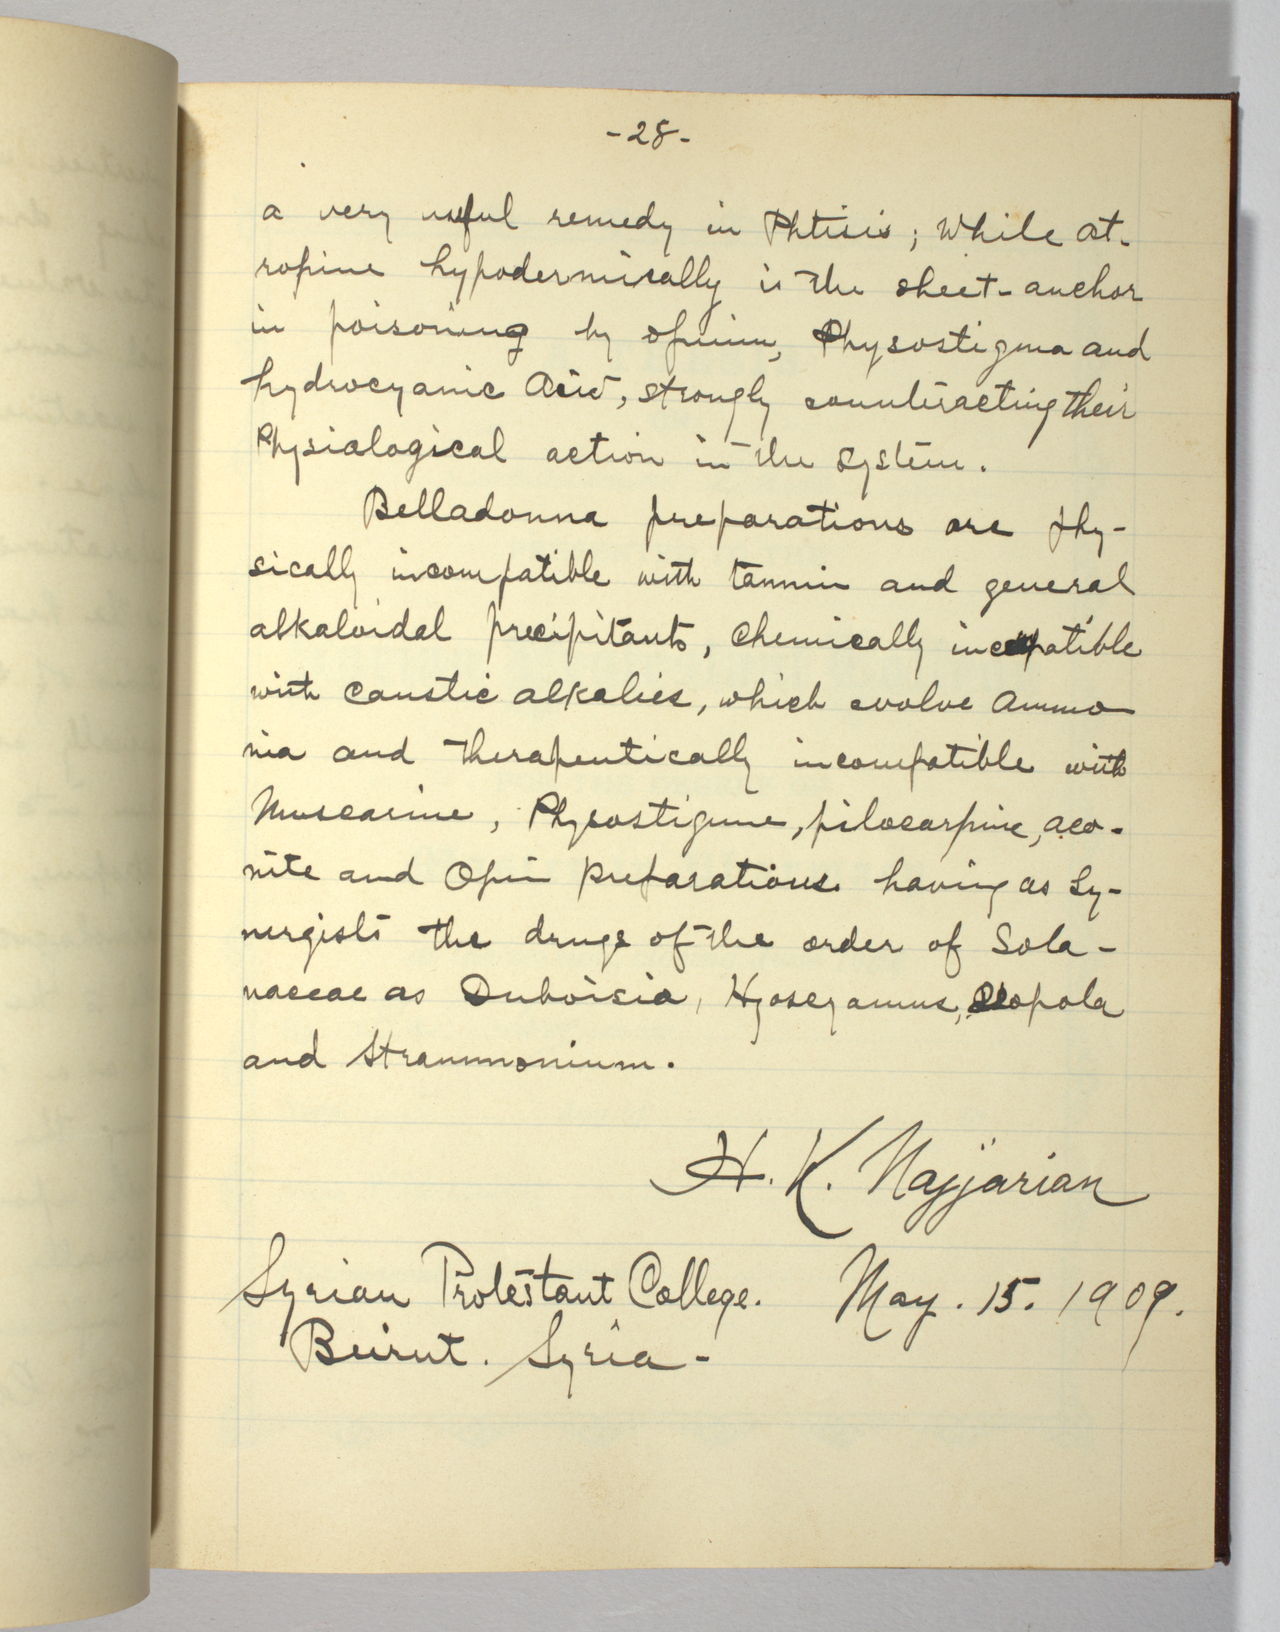 -28-
a very useful remedy in Phtisis; While at-
ropine hypodermically is the sheet-anchor
in poisoning by opium, Physostigma and
hydrocyanic Acid, strongly counteracting their
Physiological action in the system.
Belladonna preparations are phy-
sically incompatible with tannin and general
alkaloidal precipitants, Chemically incompatible
with Caustic alkalies, which evolve Ammo
nia and therapeutically incompatible with
Muscarine, Physostigmine, pilocarpine, aco-
nite and Opii preparations having as Sy-
nergists the drugs of the order of Sola-
naceae as Duboisia, Hyoscyamus, Scopola
and Strammonium.
H. K. Najjarian
Syrian Protestant College. May. 15. 1909.
Beirut. Syria-